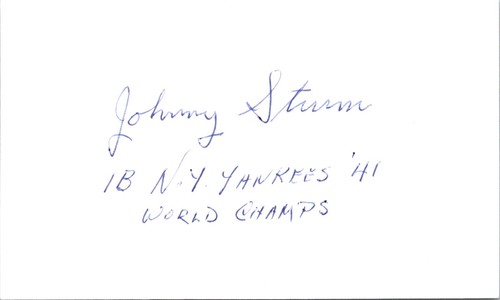 Johnny Sturm
1B N.Y. YANKEES '41
WORLD CHAMPS